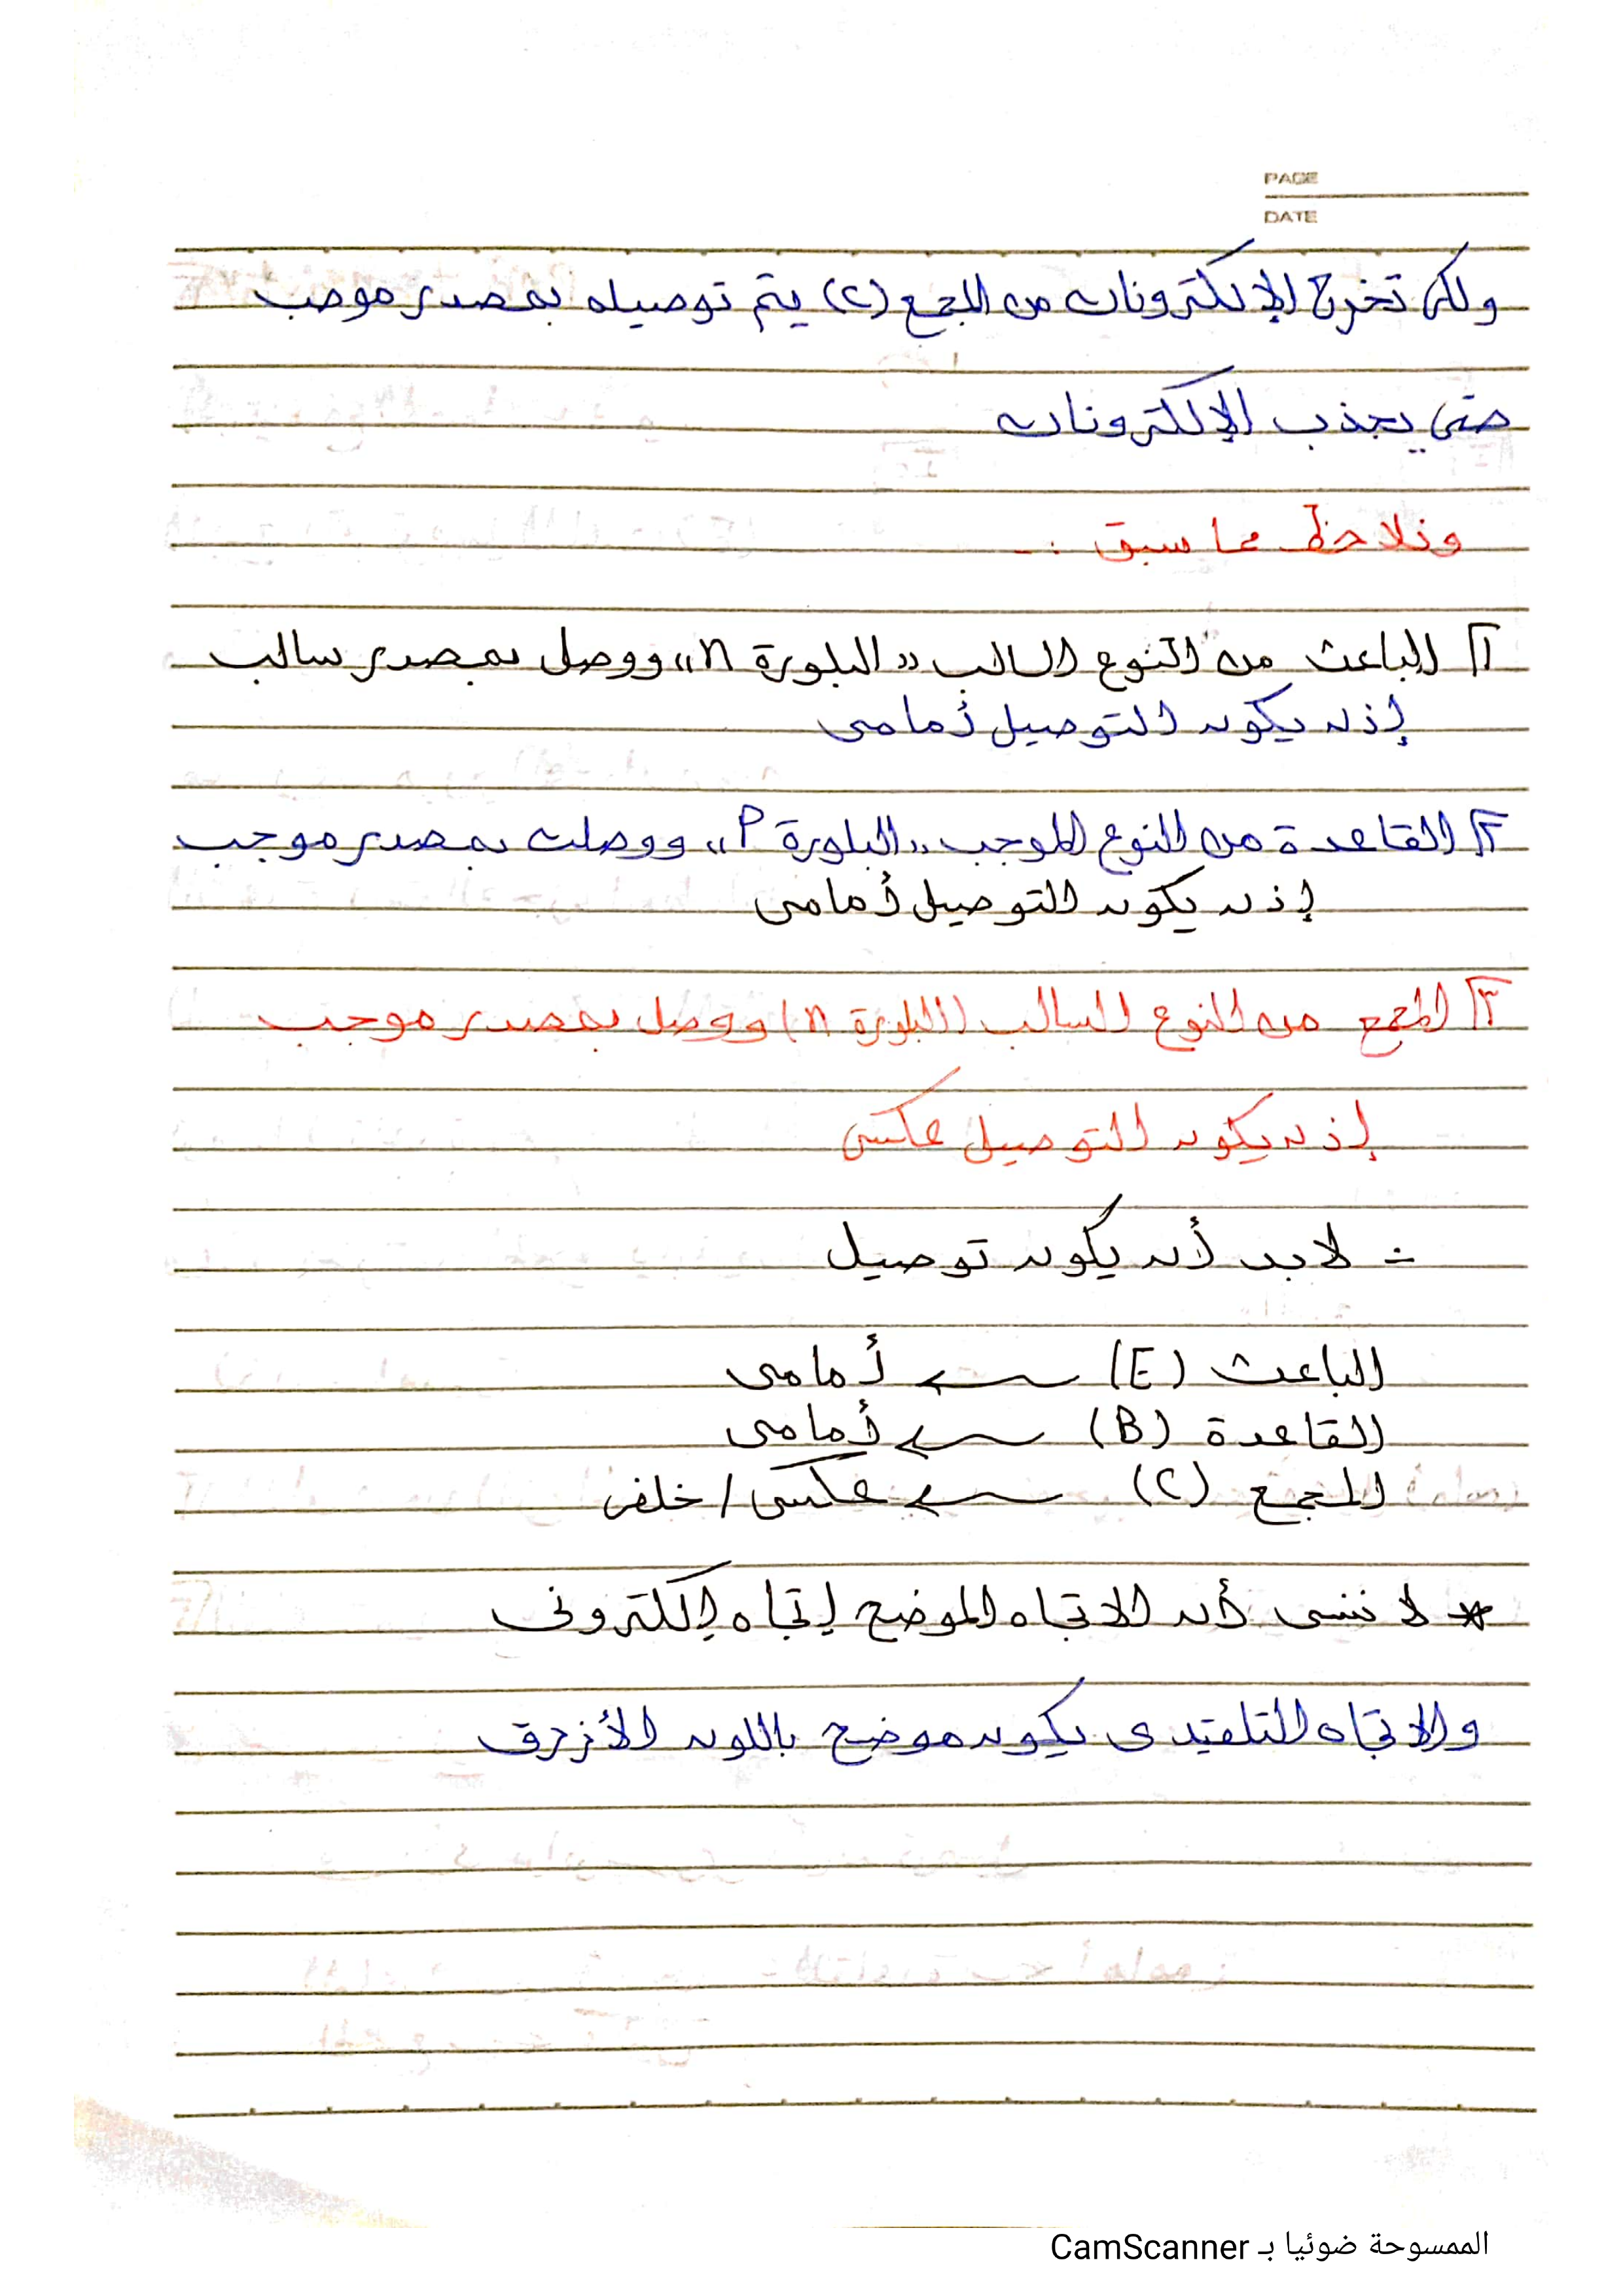 PAGE
DATE
ولكى تخرج الإلكترونات من المجمع (C) يتم توصيله بمصدر موجب
حتى يجذب الإلكترونات
ونلاحظ مما سبق :-
١ الباعث من النوع السالب «البلورة n» ووصل بمصدر سالب
إذن يكون التوصيل أمامى
٢ القاعدة من النوع الموجب «البلورة P» ووصلت بمصدر موجب
إذن يكون التوصيل أمامى
٣ المجمع من النوع السالب (البلورة n) ووصل بمصدر موجب
إذن يكون التوصيل عكسى
∴ لابد أن يكون توصيل
الباعث (E) ← أمامى
القاعدة (B) ← أمامى
المجمع (C) ← عكسى / خلفى
* لا ننسى أن الاتجاه الموضح إتجاه إلكترونى
والاتجاه التلقيدى يكون موضح باللون الأزرق
الممسوحة ضوئيا بـ CamScanner